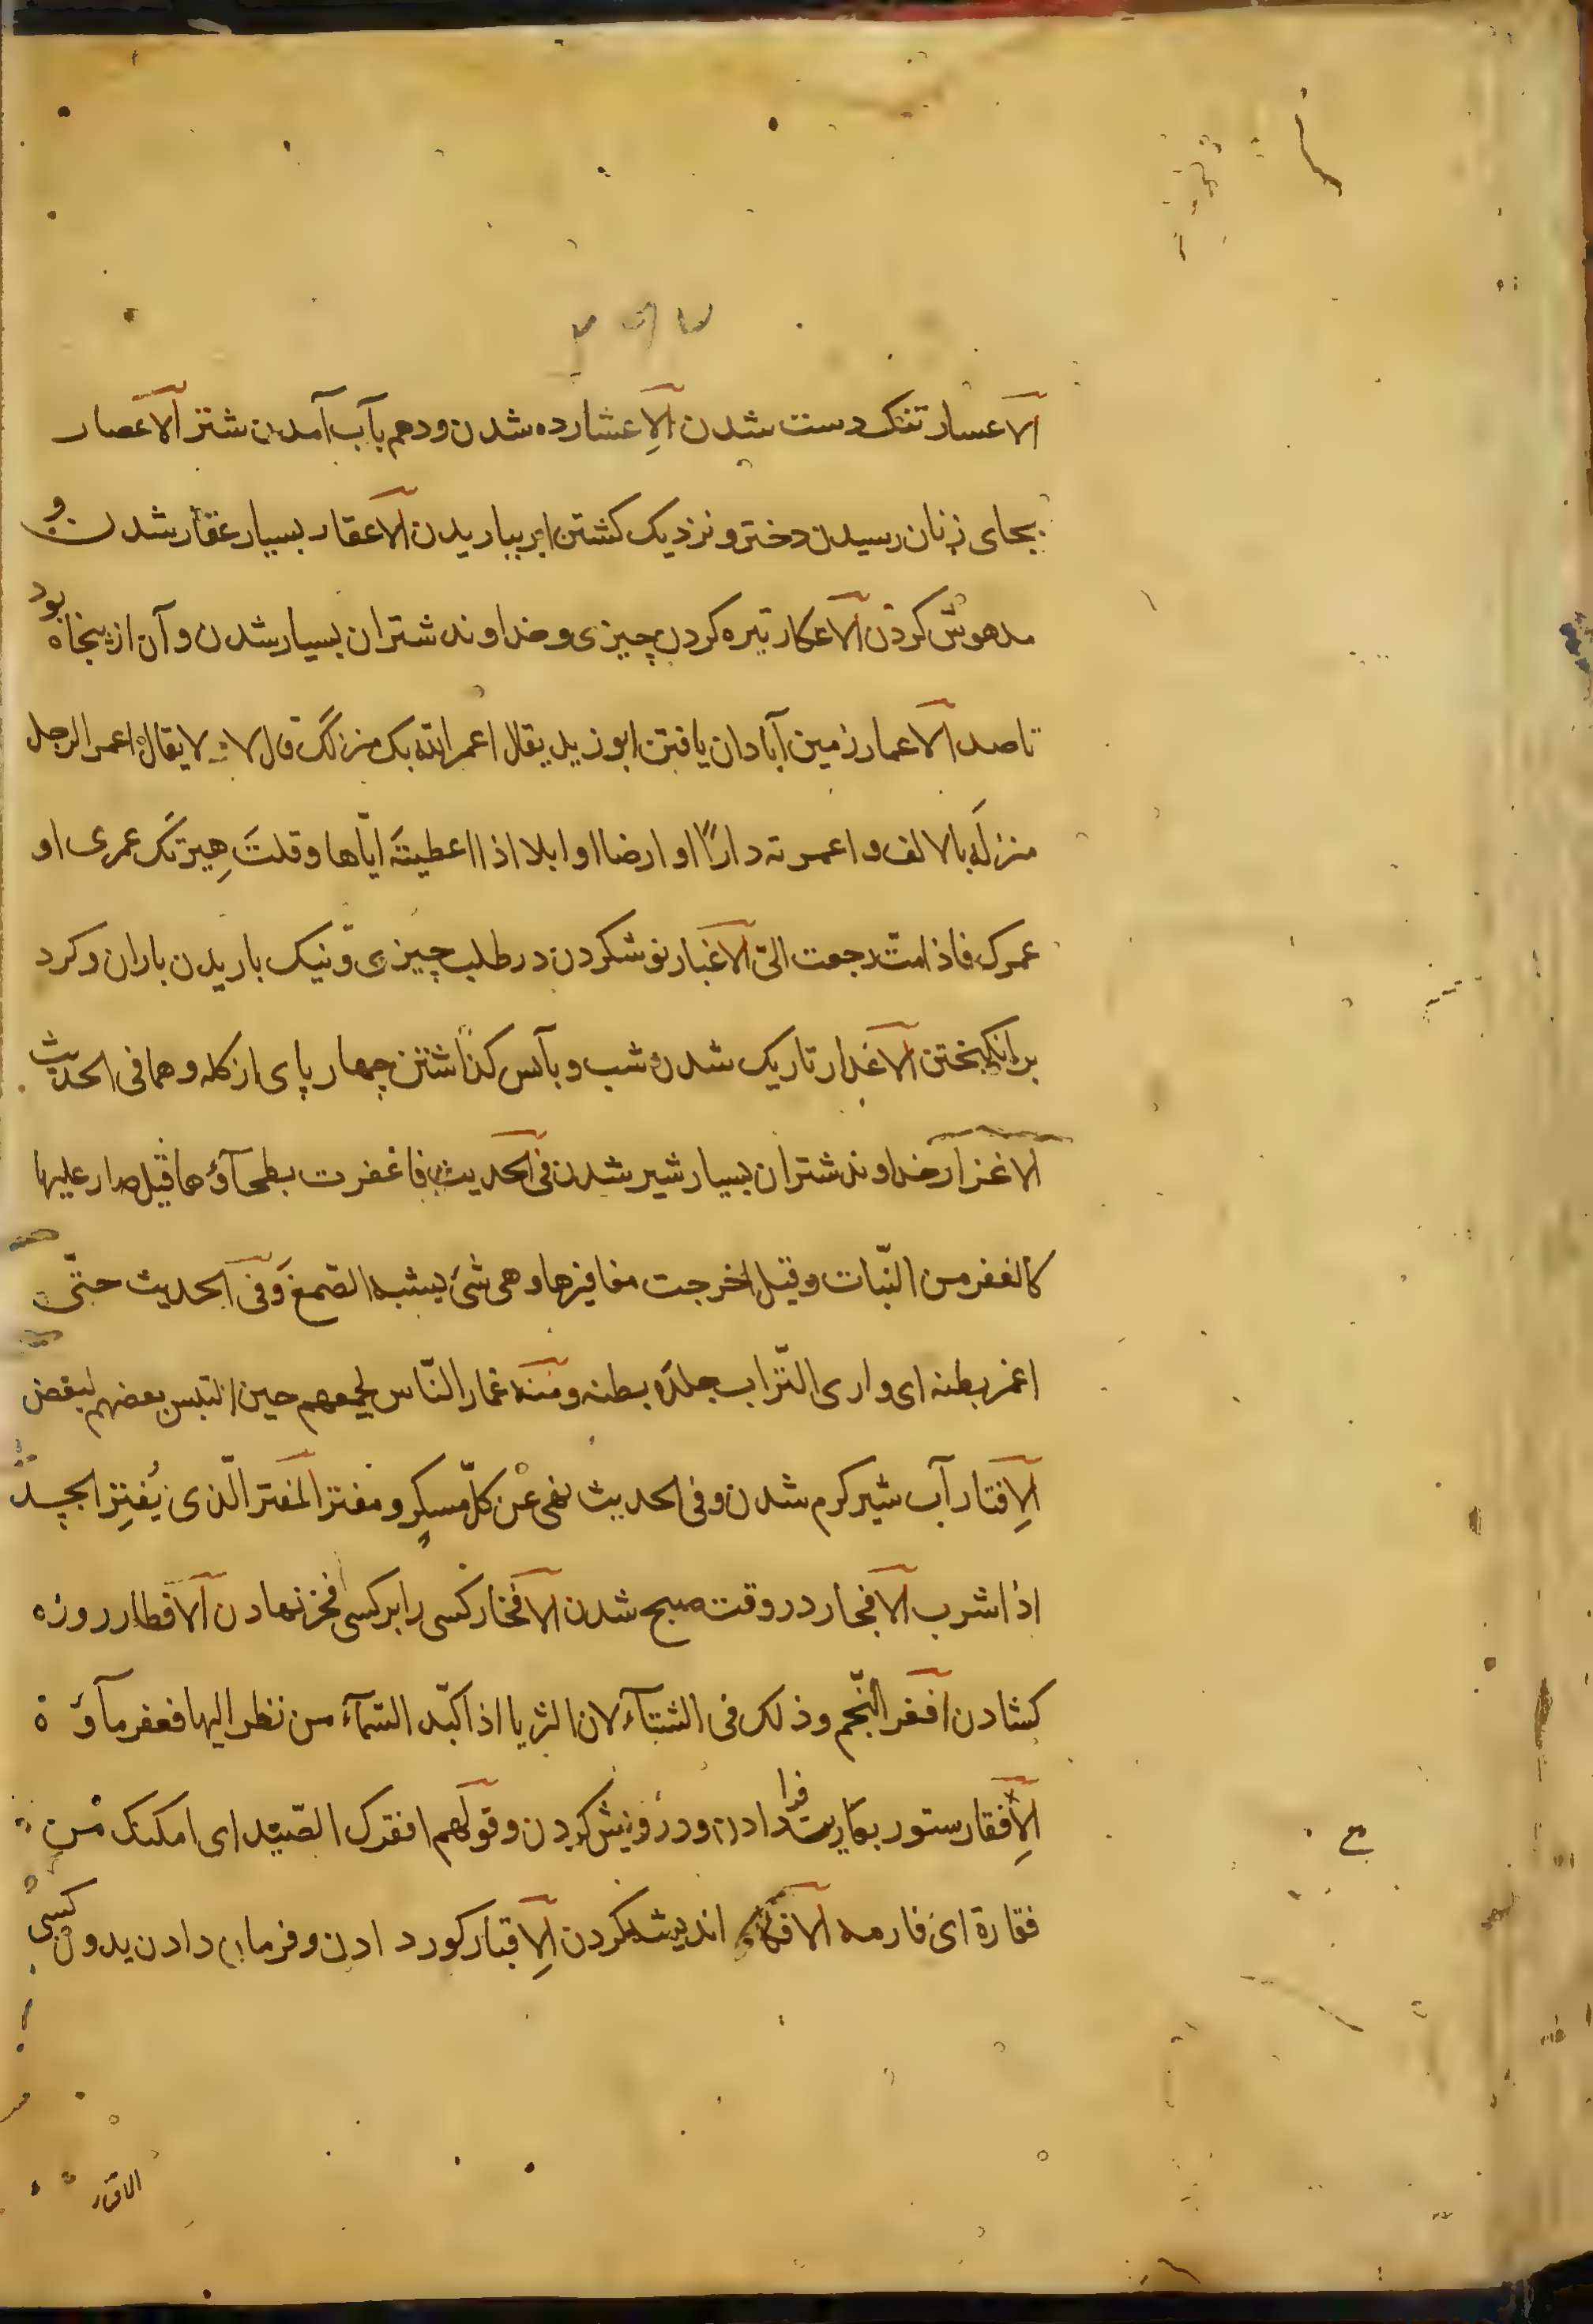 الاعسار تنک دست شدن الاِعشار ده شدن و دهم بآب آمدن شتر الاعصار
بجای زنان رسیدن دختر و نزدیک کشتن ابر بباریدن الاعقار بسیار عقار شدن و
مدهوش کردن الاعکار تیره کردن چیزی و خداوند شتران بسیار شدن و آن از پنجاه بود
تا صد الاعمار زمین آبادان یافتن ابو زید یقال اعمر الله بک منزلک قال لا یقال اعمر الرجل
منزله بالالف و اعمرته دارًا او ارضا او ابلا اذا اعطیتَه ایّاها و قلتَ هی لک عمری او
عمرک فاذا متّ رجعت الیّ الاغبار نو شکردن در طلب چیزی و نیک باریدن باران و کرد
برانکیختن الاغدار تاریک شدن شب و بآلس کذاشتن چهار پای از کله و هما فی الحدیث
الاغزار خداوند شتران بسیار شیر شدن فی الحدیث فاغفرت بطحآؤها قیل صار علیها
کالغفر من النّبات و قیل اخرجت مغافیرها و هی شیٔ یشبه الصّمغ و فی الحدیث حتّی
اغمر بطنه ای واری التّراب جلدة بطنه و منه غمار النّاس لجمعهم حین التبس بعضهم ببعض
الاِفتار آب شیر کرم شدن و فی الحدیث نهی عن کلّ مسکِر و مفتر المفتر الّذی یُفتِر الجسد
اذا شرب الافجار در وقت صبح شدن الافخار کسی را بر کسی فخر نهادن الافطار روزه
کشادن افقر النّجم و ذلک فی الشتآء لان الثریا اذا کبّد السّمآء من نظر الیها فغفر مآؤه
الاِفقار ستور بعاریت فرا دادن و درویش کردن و قولهم افقرک الصّید ای امکنک من
فقاره ای فارمه الافکار اندیشه کردن الاِقبار کور دادن و فرمان دادن بدون کسی
الاقرار